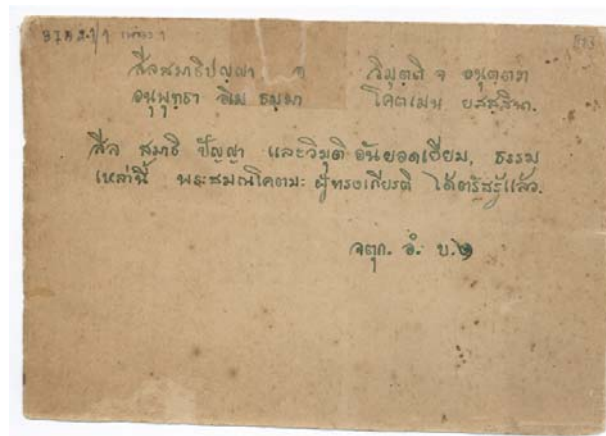 สีลสมาธิปญฺญา จ วิมุตฺติ จ อนุตฺตรา
อนุพุทฺธา อิเม ธมฺมา โคตเมน ยสสฺสินา.
สีล สมาธิ ปัญญา และวิมุติ อันยอดเยี่ยม, ธรรม
เหล่านี้ พระสมณโคตมะ ผู้ทรงเกียรติ ได้ตรัสรู้แล้ว.
จตุก. อํ. ๒.๒